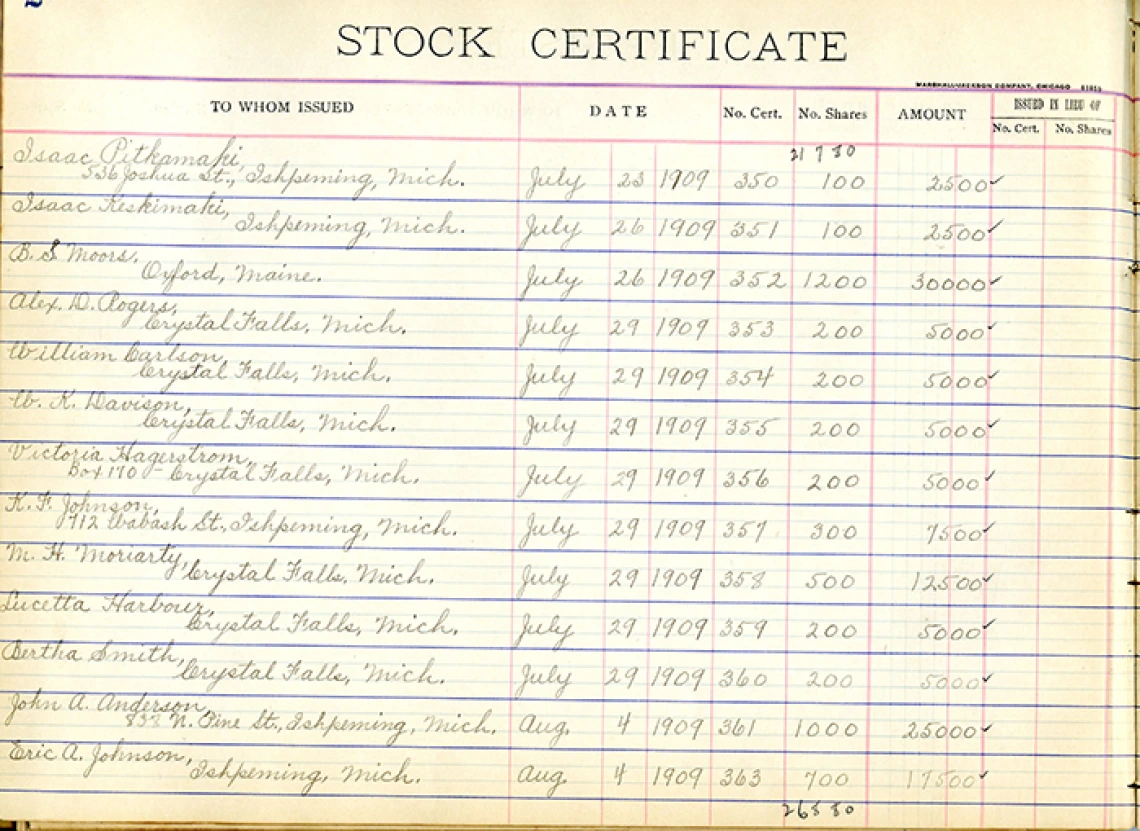 2
STOCK CERTIFICATE
MARSHALL-JACKSON COMPANY, CHICAGO
TO WHOM ISSUED DATE No. Cert. No. Shares AMOUNT ISSUED IN LIEU OF
No. Cert. No. Shares
21780
Isaac Pitkamaki,
536 Joshua St., Ishpeming, Mich. July 23 1909 350 100 2500✓
Isaac Keskimaki,
Ishpeming, Mich. July 26 1909 351 100 2500✓
B. S. Moors,
Oxford, Maine. July 26 1909 352 1200 30000✓
Alex. D. Rogers,
Crystal Falls, Mich. July 29 1909 353 200 5000✓
William Carlson,
Crystal Falls, Mich. July 29 1909 354 200 5000✓
W. K. Davison,
Crystal Falls, Mich. July 29 1909 355 200 5000✓
Victoria Hagerstrom,
Box 170 - Crystal Falls, Mich. July 29 1909 356 200 5000✓
K. F. Johnson,
712 Wabash St., Ishpeming, Mich. July 29 1909 357 300 7500✓
M. H. Moriarty,
Crystal Falls, Mich. July 29 1909 358 500 12500✓
Lucetta Harbour,
Crystal Falls, Mich. July 29 1909 359 200 5000✓
Bertha Smith,
Crystal Falls, Mich. July 29 1909 360 200 5000✓
John A. Anderson,
N. Pine St., Ishpeming, Mich. Aug. 4 1909 361 1000 25000✓
Eric A. Johnson,
Ishpeming, Mich. Aug. 4 1909 363 700 17500✓
26880